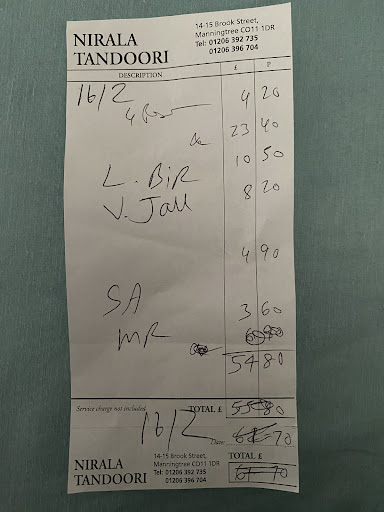 NIRALA
TANDOORI
14-15 Brook Street,
Manningtree CO11 1DR
Tel: 01206 392 735
01206 396 704
DESCRIPTION £ P
16/2
4 20
23 40
10 50
L. BIR
8 20
V. Jall
4 90
SA
3 60
MR
54 80
Service charge not included
TOTAL £ 55 80
16/2
Date 70
NIRALA
TANDOORI
14-15 Brook Street,
Manningtree CO11 1DR
Tel: 01206 392 735
01206 396 704
TOTAL £
61 70